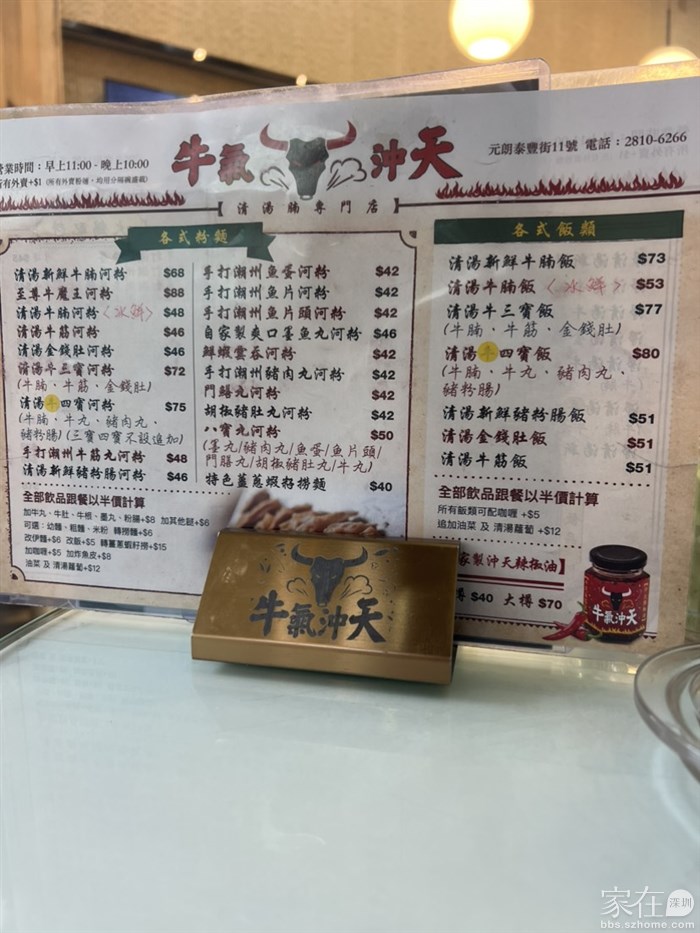 營業時間：早上11:00 - 晚上10:00
所有外賣+$1
牛氣沖天
元朗泰豐街11號 電話：2810-6266
【清湯腩專門店】
各式粉麵
清湯新鮮牛腩河粉 $68
至尊牛魔王河粉 $88
清湯牛腩河粉〈冰鮮〉 $48
清湯牛筋河粉 $46
清湯金錢肚河粉 $46
清湯牛三寶河粉 $72
(牛腩、牛筋、金錢肚)
清湯牛四寶河粉 $75
(牛腩、牛丸、豬肉丸、
豬粉腸)(三寶四寶不設追加)
手打潮州牛筋丸河粉 $48
清湯新鮮豬粉腸河粉 $46
全部飲品跟餐以半價計算
加牛丸、牛肚、牛根、墨丸、粉腸+$8 加其他餸+$6
可選：幼麵、粗麵、米粉 轉撈麵+$6
改伊麵+$6 改飯+$5 轉薑蔥蝦籽撈+$15
加咖喱+$5 加炸魚皮+$8
油菜 及 清湯蘿蔔+$12
手打潮州魚蛋河粉 $42
手打潮州魚片河粉 $42
手打潮州魚片頭河粉 $42
自家製爽口墨魚丸河粉 $46
鮮蝦雲吞河粉 $42
手打潮州豬肉丸河粉 $42
門鱔丸河粉 $42
胡椒豬肚丸河粉 $42
八寶丸河粉 $50
(墨丸/豬肉丸/魚蛋/魚片頭/
門膳丸/胡椒豬肚丸/牛丸)
特色薑蔥蝦籽撈麵 $40
各式飯類
清湯新鮮牛腩飯 $73
清湯牛腩飯〈冰鮮〉 $53
清湯牛三寶飯 $77
(牛腩、牛筋、金錢肚)
清湯牛四寶飯 $80
(牛腩、牛丸、豬肉丸、
豬粉腸)
清湯新鮮豬粉腸飯 $51
清湯金錢肚飯 $51
清湯牛筋飯 $51
全部飲品跟餐以半價計算
所有飯類可配咖喱 +$5
追加油菜 及 清湯蘿蔔 +$12
家製沖天辣椒油】
樽 $40 大樽 $70
牛氣沖天
牛氣沖天
家在深圳
bbs.szhome.com